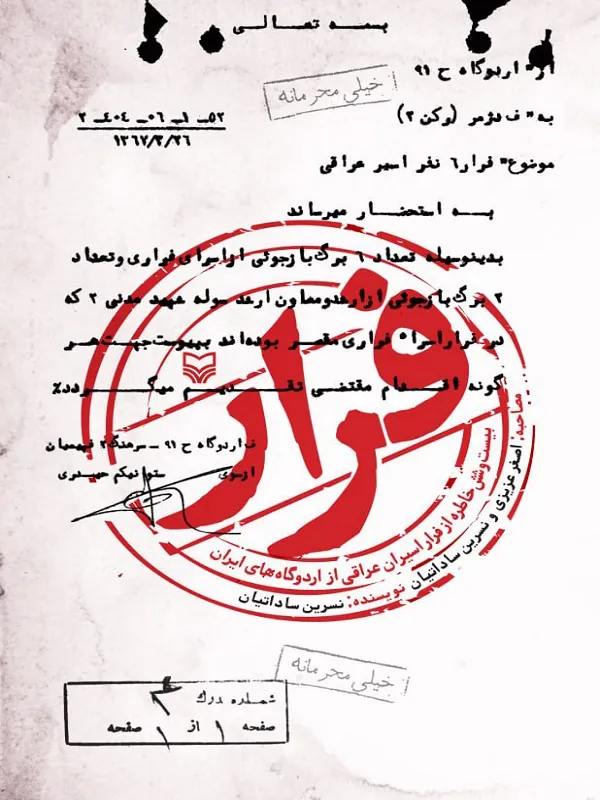 بسمه تعالی
از" اردوگاه ح ۹۱
خیلی محرمانه
به" ف دژمر (رکن ۲)
۵۲ــ ۱ــ ۰۶ــ ۴۰۴ــ ۲
۱۳۶۷/۲/۲۶
موضوع" فرار ۶ نفر اسیر عراقی
به استحضار میرساند
بدینوسیله تعداد ۶ برگ بازجوئی از اسرای فراری و تعداد
۲ برگ بازجوئی از ارشد و معاون ارشد سوله شهید مدنی ۲ که
در فرار اسراء فراری مقصر بوده اند به پیوست جهت هر
گونه اقدام مقتضی تقدیم میگردد٪
ف اردوگاه ح ۹۱ ــ سرهنگ ۲ فهیمیان
ازسوی ستوانیکم حیدری
فرار
بیست و شش خاطره از فرار اسیران عراقی از اردوگاه های ایران
مصاحبه: اصغر عزیزی و نسرین ساداتیان
نویسنده: نسرین ساداتیان
خیلی محرمانه
شماره درک
صفحه ۱ از ۱ صفحه